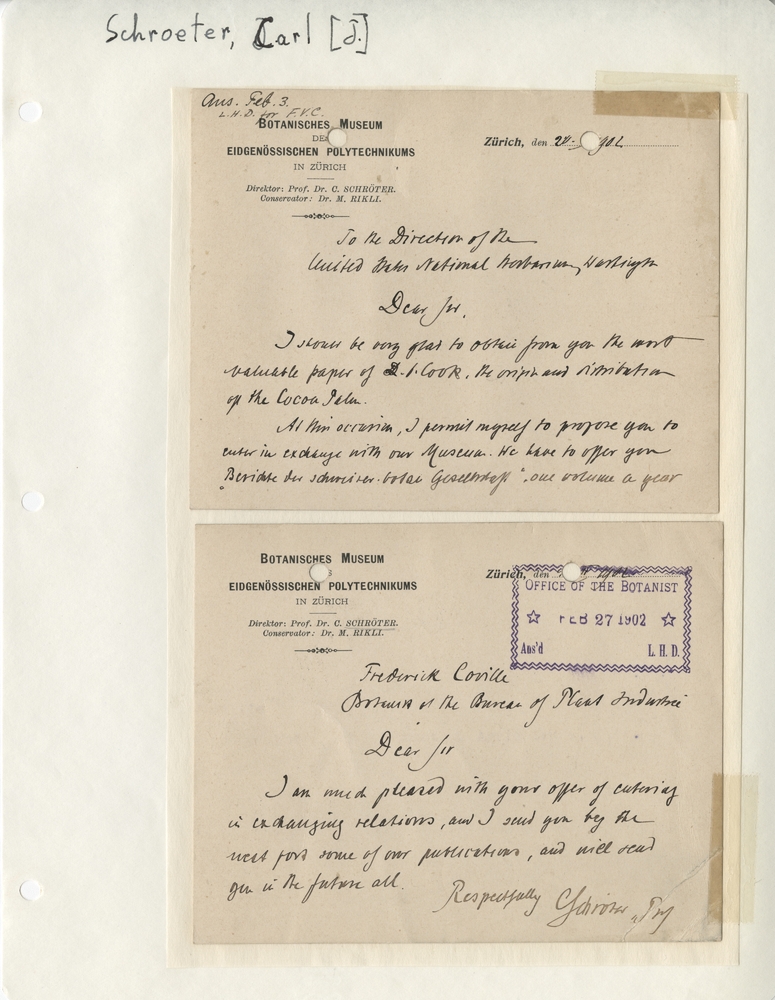 Schroeter, Carl [J.]
Ans. Feb. 3.
L.H.D. for F.V.C.
BOTANISCHES MUSEUM
DES
EIDGENÖSSISCHEN POLYTECHNIKUMS
IN ZÜRICH
Direktor: Prof. Dr. C. SCHRÖTER.
Conservator: Dr. M. RIKLI.
Zürich, den 902
To the Direction of the
United States National Herbarium, Washington
Dear Sir,
I should be very glad to obtain from you the most
valuable paper of O. F. Cook, the origin and distribution
of the Cocoa Palm.
At this occasion, I permit myself to propose you to
enter in exchange with our Museum. We have to offer you
"Berichte der schweizer. botan Gesellschaft", one volume a year
BOTANISCHES MUSEUM
S
EIDGENÖSSISCHEN POLYTECHNIKUMS
IN ZÜRICH
Direktor: Prof. Dr. C. SCHRÖTER.
Conservator: Dr. M. RIKLI.
Zürich, den 1902
OFFICE OF THE BOTANIST
FEB 27 1902
Ans'd L. H. D.
Frederick Coville
Botanist of the Bureau of Plant Industrie
Dear Sir
I am much pleased with your offer of entering
in exchanging relations, and I send you by the
next post some of our publications, and will send
you in the future all.
Respectfully C Schröter, Prof